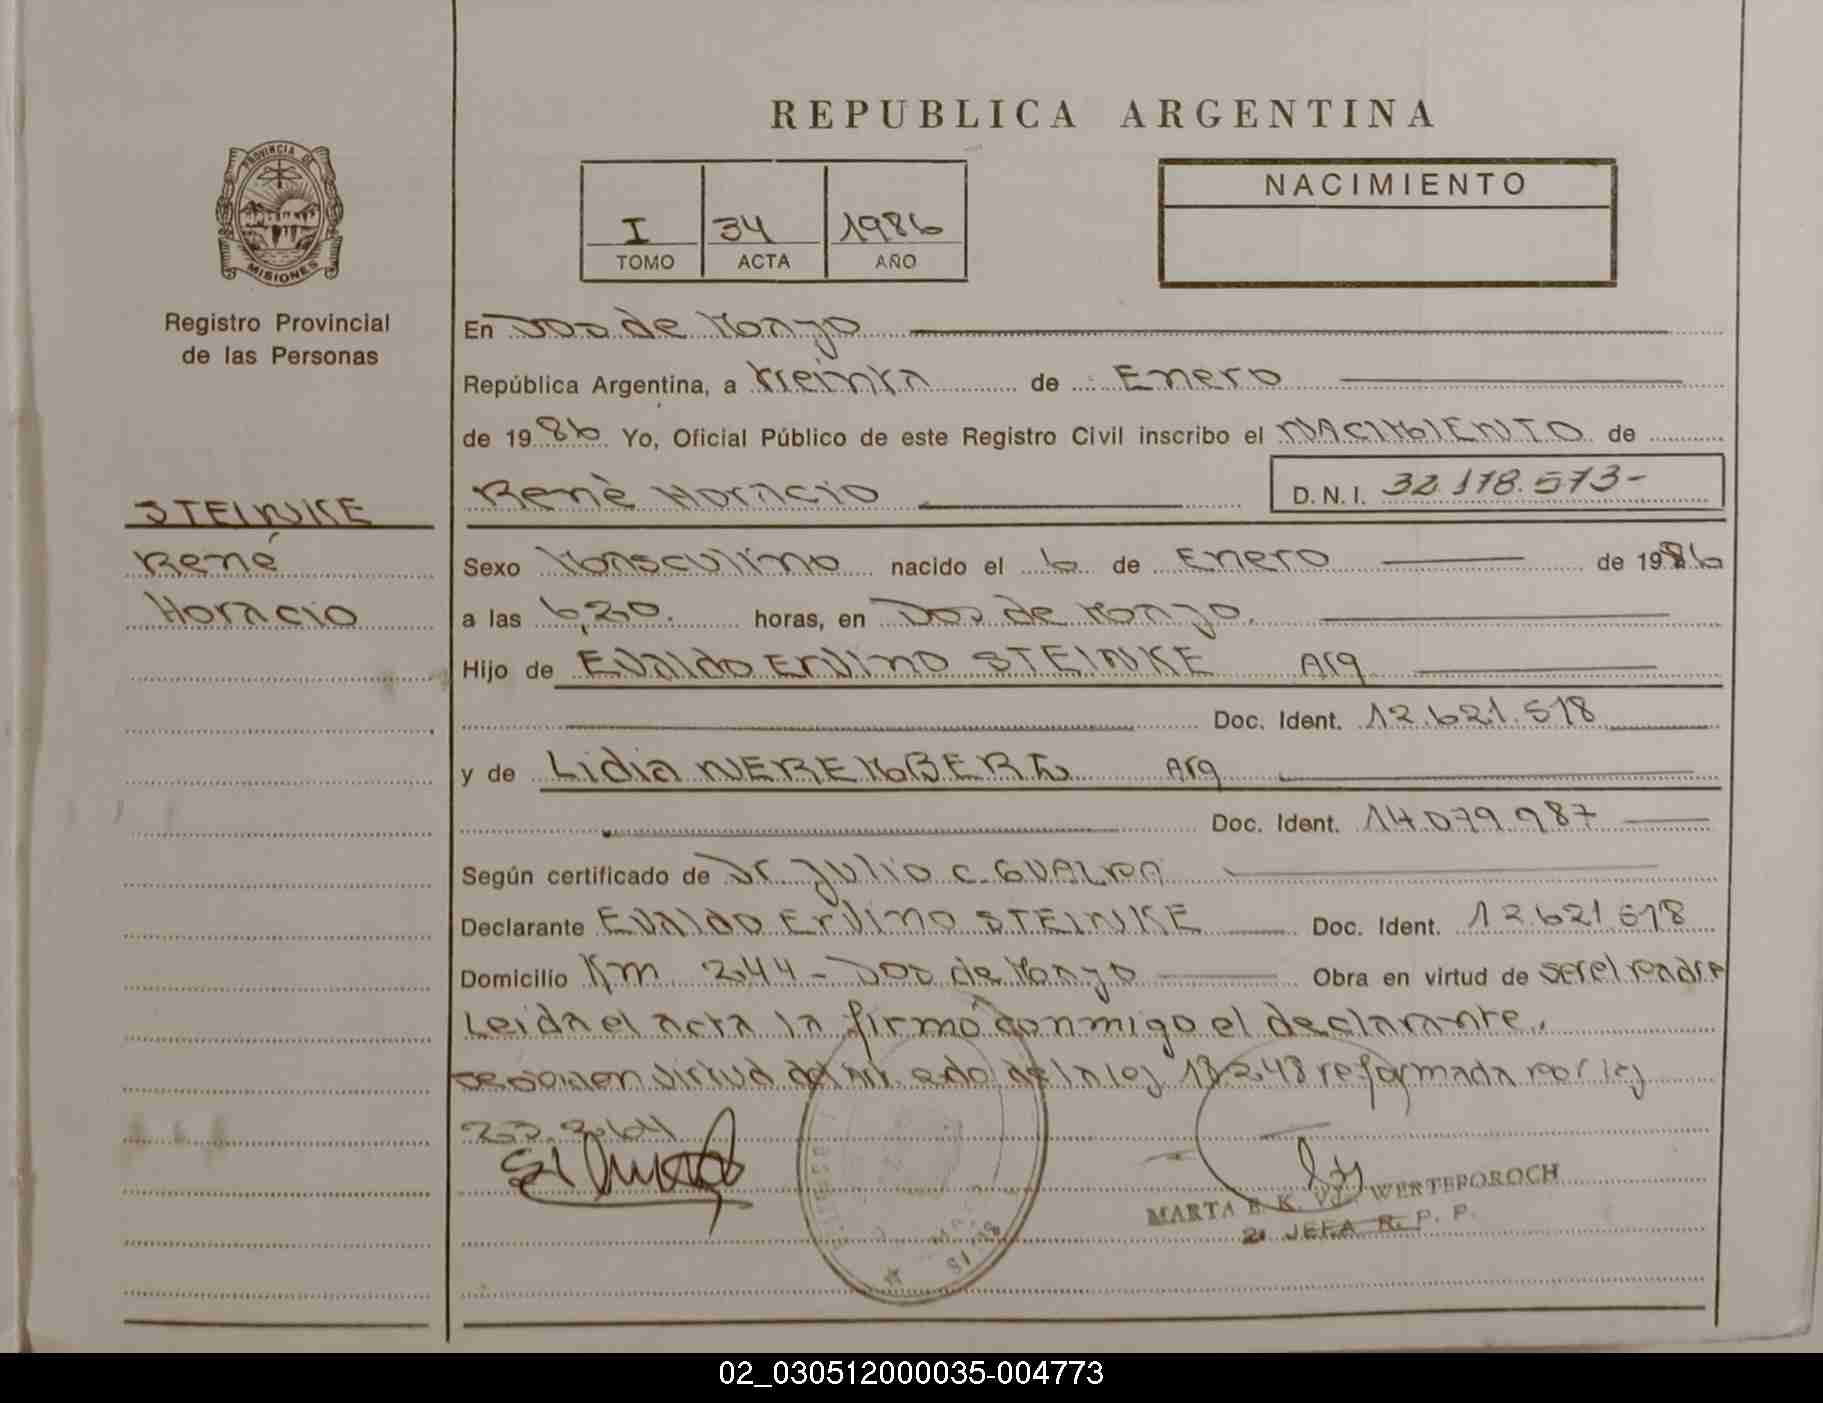 REPUBLICA ARGENTINA
PROVINCIA DE
MISIONES
Registro Provincial
de las Personas
I 34 1986
TOMO ACTA AÑO
NACIMIENTO
En Dos de Mayo
República Argentina, a treinta de Enero
de 1986 Yo, Oficial Público de este Registro Civil inscribo el NACIMIENTO de
René Horacio D.N.I. 32.178.573-
STEINKE
René
Horacio
Sexo Masculino nacido el 6 de Enero de 1986
a las 6,20. horas, en Dos de Mayo.
Hijo de Evaldo Ervino STEINKE Arg
Doc. Ident. 12.621.518
y de Lidia NEREMBERG Arg
Doc. Ident. 14.079.987
Según certificado de Dr. Julio C.
Declarante Evaldo Ervino STEINKE Doc. Ident. 12.621.518
Domicilio Km 244 - Dos de Mayo Obra en virtud de ser el padre
Leida el acta la firmó conmigo el declarante.
en virtud del art. de la ley 13248 reformada por ley
MARTA E. K. WERTEPOROCH
JEFA R. P. P.
02_030512000035-004773